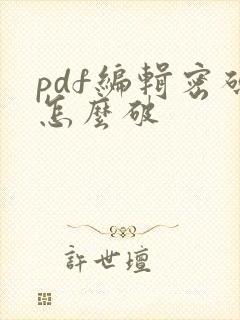 pdf編輯密碼
怎麼破
許世壇